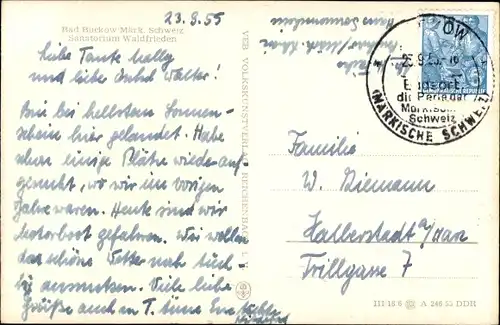 23.9.55
Bad Buckow Märk. Schweiz
Sanatorium Waldfrieden
Liebe Tante Wally
und lieber Onkel Walter!
Bin bei hellstem Sonnen-
schein hier gelandet. Habe
schon einige Plätze wieder auf-
gesucht, wo wir im vorigen
Jahre waren. Heute sind wir
Motorboot gefahren. Wir wollen
das schöne Wetter nah tüch-
tig ausnutzen. Viele liebe
Grüße auch an T.
VEB VOLKSKUNSTVERLAG REICHENBACH I. V.
BUCKOW
23.9.55
die Perle der
Märkischen
Schweiz
(MÄRKISCHE SCHWEIZ)
Familie
W. Niemann
Halberstadt a/Harz
Trillgasse 7
III 18 6 A 246 55 DDR